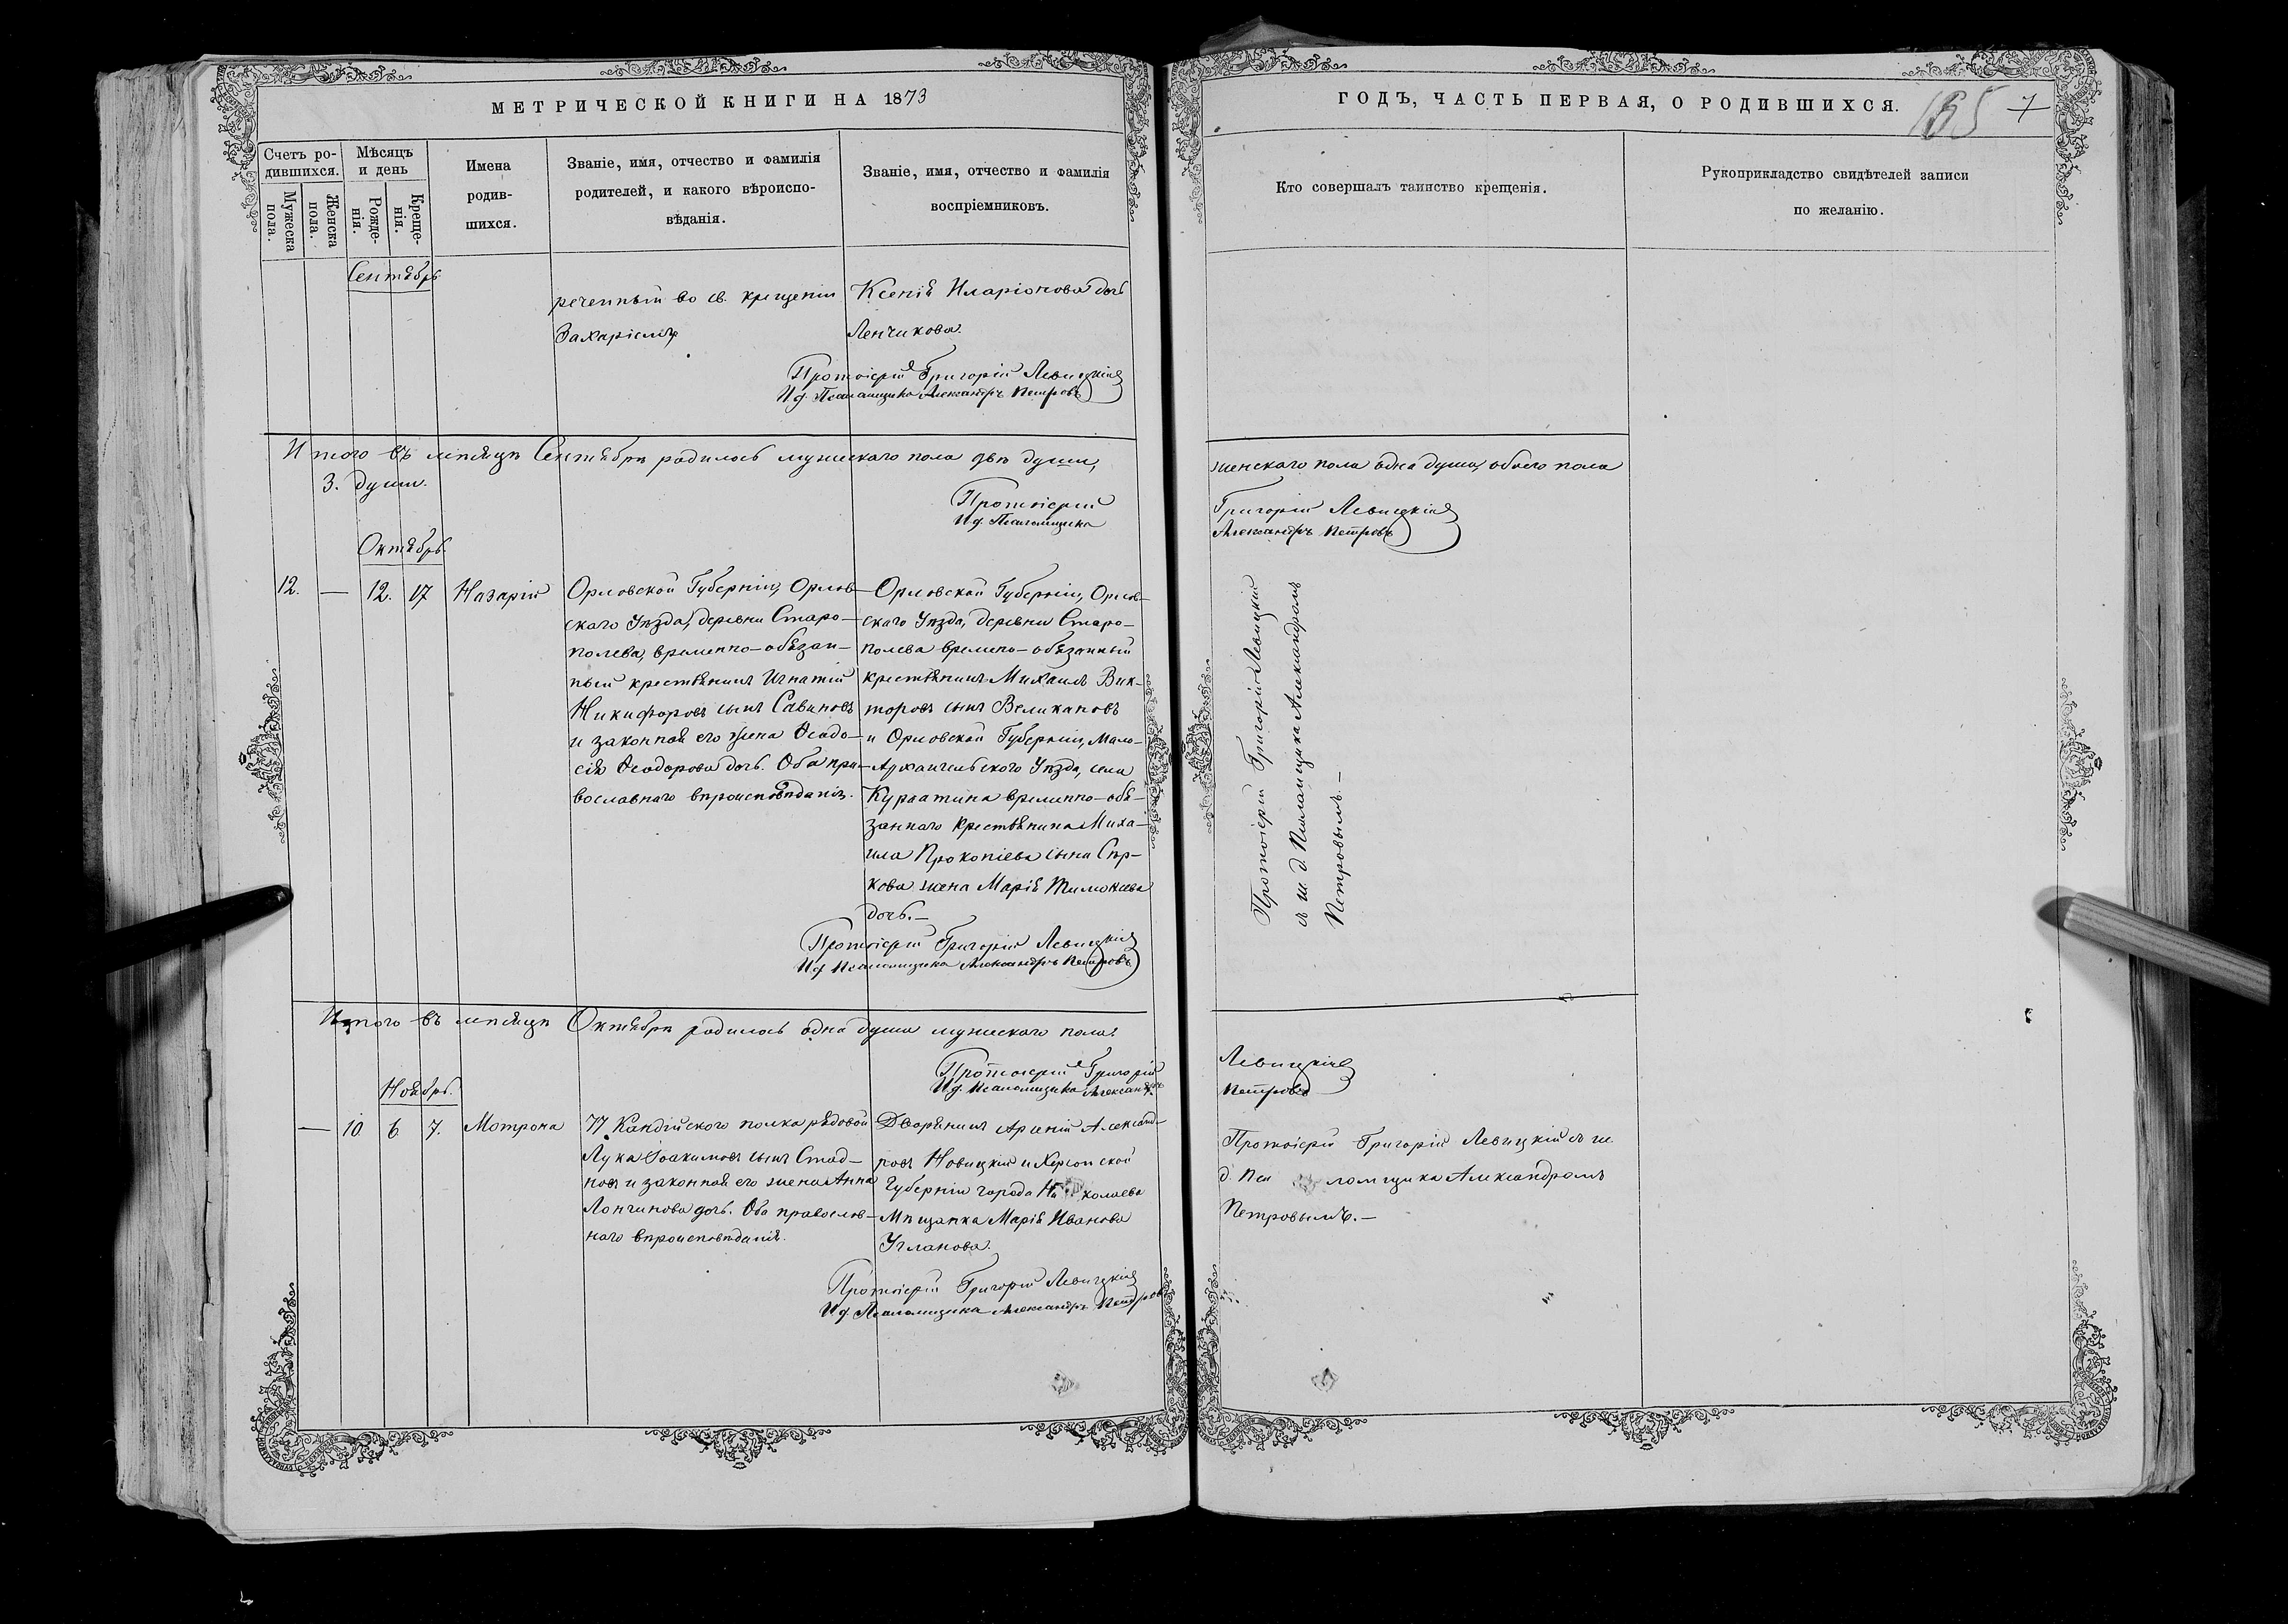 МЕТРИЧЕСКОЙ КНИГИ НА 1873
Счетъ ро-
дившихся.
Мужеска
пола.
Женска
пола.
Мѣсяцъ
и день
Рожде-
нія.
Креще-
нія.
Имена
родив-
шихся.
Званіе, имя, отчество и фамилія
родителей, и какого вѣроиспо-
вѣданія.
Званіе, имя, отчество и фамилія
воспріемниковъ.
Сентябрь
реченный во св. крещеніи
Захаріемъ
Ксенія Иларіонова дочь
Ленчикова.
Протоіерей Григорій Левицкій
И д. Псаломщика Александръ Петровъ
Итого въ мѣсяцѣ Сентябрѣ родилось мужескаго пола двѣ души,
3. души.
Протоіерей
И д. Псаломщика
Октябрь.
12. — 12. 17 Назарій
Орловской Губерніи, Орлов-
скаго Уѣзда, деревни Старо-
полева, временно-обязан-
ный крестьянинъ Игнатій
Никифоровъ сынъ Савиновъ
и законная его жена Ѳеодо-
сія Ѳеодорова дочь. Оба пра-
вославнаго вѣроисповѣданія.
Орловской Губерніи, Орлов-
скаго Уѣзда, деревни Старо-
полева времено-обязанный
крестьянинъ Михаилъ Вик-
торовъ сынъ Великановъ
и Орловской Губерніи, Мало-
Архангельского Уѣзда, села
временно-обя-
заннаго крестьянина Миха-
ила Прокопіева сына Сѣр-
кова жена Марія Тимоѳеева
дочь.—
Протоіерей Григорій Левицкій
И д. Псаломщика Александръ Петровъ
Итого въ мѣсяцѣ Октябрѣ родилось одна душа мужескаго пола.
Протоіерей Григорій
И д. Псаломщика Александръ
Ноябрь.
— 10. 6. 7. Мотрона
77 Кандійского полка рядовой
Лука Іоакимовъ сынъ Стад-
новъ и законная его жена Анна
Лончинова дочь. Оба православ-
наго вѣроисповѣданія.
Дворянинъ Арсеній Александ-
ровъ Новицкій и Херсонской
Губерніи города Николаева
Мѣщанка Марія Иванова
Угланова.
Протоіерей Григорій Левицкій
И д. Псаломщика Александръ Петровъ
ГОДЪ, ЧАСТЬ ПЕРВАЯ, О РОДИВШИХСЯ.
165 7
Кто совершалъ таинство крещенія.
Рукоприкладство свидѣтелей записи
по желанію.
женскаго пола одна душа, обоего пола
Григорій Левицкій
Александръ Петровъ
Протоіерей Григорій Левицкій
съ и. д. Псаломщика Александромъ
Петровымъ.—
Левицкій
Петровъ
Протоіерей Григорій Левицкій съ и.
д. Псаломщика Александромъ
Петровымъ.—